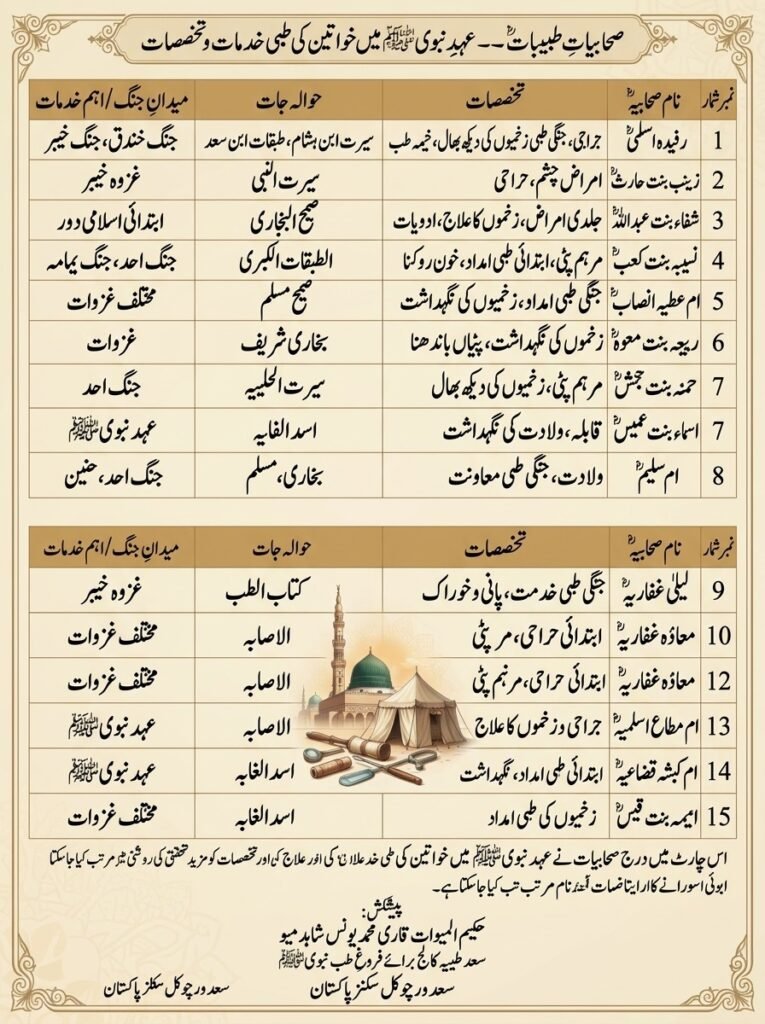 صحابیاتِ طبیباتؓ ۔۔۔ عہدِ نبوی ﷺ میں خواتین کی طبی خدمات و تخصصات
نمبر شمار | نام صحابیہؓ | تخصصات | حوالہ جات | میدانِ جنگ/اہم خدمات
1 | رفیدہ اسلمیؓ | جراحی، جنگی طبی زخمیوں کی دیکھ بھال، خیمہ طب | سیرت ابن ہشام، طبقات ابن سعد | جنگ خندق، جنگ خیبر
2 | زینب بنت حارثؓ | امراض چشم، حراحی | سیرت النبی | غزوہ خیبر
3 | شفاء بنت عبداللہؓ | جلدی امراض، زخموں کا علاج، ادویات | صحیح البخاری | ابتدائی اسلامی دور
4 | نسیبہ بنت کعبؓ | مرہم پٹی، ابتدائی طبی امداد، خون روکنا | الطبقات الکبری | جنگ احد، جنگ یمامہ
5 | ام عطیہ انصابؓ | جنگی طبی امداد، زخمیوں کی نگہداشت | صحیح مسلم | مختلف غزوات
6 | ریعہ بنت معوہؓ | زخموں کی نگہداشت، پٹیاں باندھنا | بخاری شریف | غزوات
7 | حمنہ بنت جحشؓ | مرہم پٹی، زخمیوں کی دیکھ بھال | سیرت الحلبیہ | جنگ احد
7 | اسماء بنت عمیسؓ | قابلہ، ولادت کی نگہداشت | اسد الفایہ | عہد نبوی ﷺ
8 | ام سلیمؓ | ولادت، جنگی طبی معاونت | بخاری، مسلم | جنگ احد، حنین
نمبر شمار | نام صحابیہؓ | تخصصات | حوالہ جات | میدانِ جنگ/اہم خدمات
9 | لیلیٰ غفاریہؓ | جنگی طبی خدمت، پانی و خوراک | کتاب الطب | غزوہ خیبر
10 | معاذہ غفاریہؓ | ابتدائی حراحی، مر پٹی | الاصابہ | مختلف غزوات
12 | معاذہ غفاریہؓ | ابتدائی حراحی، مرنہم پٹی | الاصابہ | مختلف غزوات
13 | ام مطاع اسلمیہؓ | جراحی و زخموں کا علاج | الاصابہ | عہد نبوی ﷺ
14 | ام کبشہ قضاعیہؓ | ابتدائی طبی امداد، نگہداشت | اسد الغابہ | عہد نبوی ﷺ
15 | ایمہ بنت قیسؓ | زخمیوں کی طبی امداد | اسد الغابہ | مختلف غزوات
اس چارٹ میں درج صحابیات نے عہد نبوی ﷺ میں خواتین کی طبی کی اور علاج اور تخصصات کو مزید تحقق کی روشنی مرتب کیا جا سکتا
نام مرتب تب کیا جا سکتا ہے۔
پیشکش:
حکیم المیوات قاری محمد یونس شاہد میو
سعد طبیہ کالج برائے فروغِ طب نبوی ﷺ
سعد ورچوکل سکنز پاکستان
سعد ورچوکل سکلز پاکستان